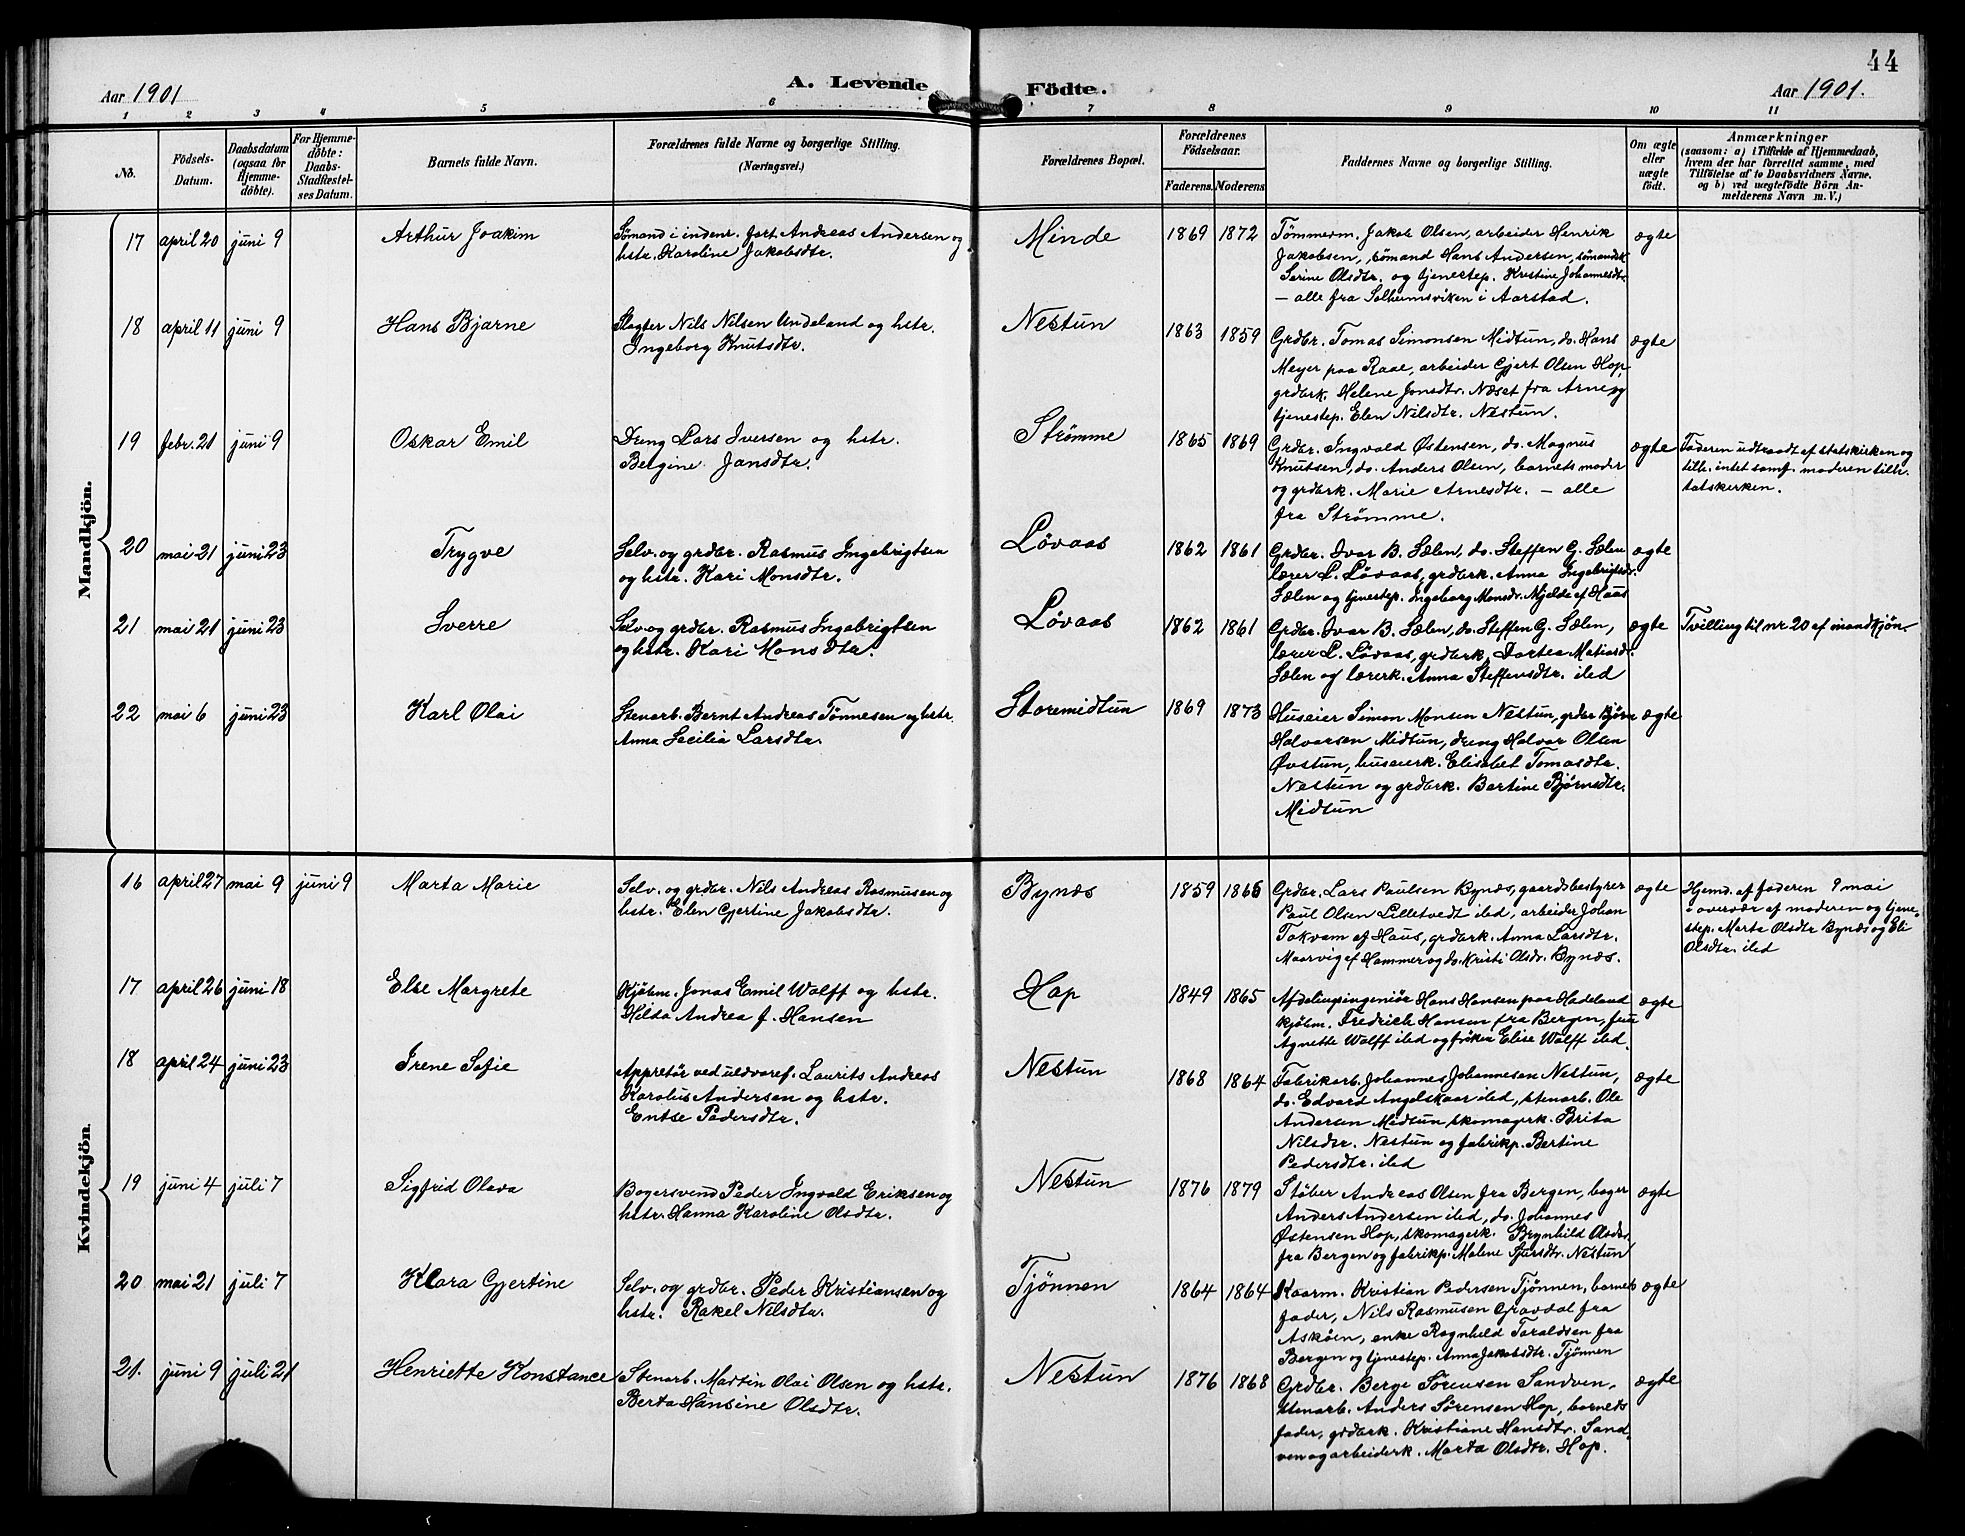 44
A. Levende Födte.
Aar 1901
Aar 1901.
1 2 3 4 5 6 7 8 9 10 11
No.
Födsels-
Datum.
Daabsdatum
(ogsaa for
Hjemme-
döbte).
For Hjemme-
döbte:
Daabs-
Stadfæstel-
ses Datum.
Barnets fulde Navn.
Forældrenes fulde Navne og borgerlige Stilling.
(Næringsvei.)
Forældrenes Bopæl.
Forældrenes
Födselsaar.
Faderens. Moderens
Faddernes Navne og borgerlige Stilling.
Om ægte
eller
uægte
födt.
Anmærkninger
(saasom: a) i Tilfælde af Hjemmedaab,
hvem der har forrettet samme, med
Tilföielse af to Daabsvidners Navne.
og b) ved uægtefödte Börn An-
melderens Navn m. V.)
Mandkjön.
17 april 20 juni 9 Arthur Joakim
Sømand i indenr. fart Andreas Andersen og
hstr. Karoline Jakobsdtr.
Minde 1869 1872
Tømmerm. Jakob Olsen, arbeider Henrik
Jakobsen, sømand Hans Andersen, sømandsk.
Sarine Olsdtr. og tjenestep. Kristine Johannesdtr.
— alle fra Solheimsviken i Aarstad.
ægte
18 april 11 juni 9 Hans Bjarne
Slagter Nils Nilsen Undeland og hstr.
Ingeborg Knutsdtr.
Nestun 1863 1859
Grdbr. Tomas Simonsen Midtun, do. Hans
Meyer paa Raae, arbeider Gjert Olsen Hop,
grdbrk. Helene Jonsdtr. Næset fra Arne og
tjenestep. Elen Nilsdtr. Nestun.
ægte
19 febr. 21 juni 9 Oskar Emil
Dreng Lars Iversen og hstr.
Bergine Jansdtr.
Strømme 1865 1869
Grdbr. Ingvald Østensen, do. Magnus
Knutsen, do. Anders Olsen, barnets moder
og grdbrk. Marie Arnesdtr. — alle
fra Strømme.
ægte
Faderen udtraadt af statskirken og
tilh. intet samf. moderen tilh.
statskerken.
20 mai 21 juni 23 Trygve
Selv. og grdbr. Rasmus Ingebrigtsen
og hstr. Kari Monsdtr.
Løvaas 1862 1861
Grdbr. Ivar B. Sælen, do. Steffen G. Sælen
lærer L. Løvaas, grdbrk. Anna Ingebrigtsdr.
Sælen og tjenestep. Ingeborg Monsdr. Mjelde af Haus
ægte
21 mai 21 juni 23 Sverre
Selv. og grdbr. Rasmus Ingebrigtsen
og hstr. Kari Monsdtr.
Løvaas 1862 1861
Grdbr. Ivar B. Sælen, do. Steffen G. Sælen,
lærer L. Løvaas, grdbrk. Dortea Matiasd.
Sælen og lærerk. Anna Steffensdtr. ibd
ægte
Tvilling til nr. 20 af mandkjøn.
22 mai 6 juni 23 Karl Olai
Stenarb. Bernt Andreas Tønnesen og hstr.
Anna Secilia Larsdtr.
Storemidtun 1869 1873
Huseier Simon Monsen Nestun, grdbr Bjørn
Halvorsen Midtun, dreng Halvor Olsen
Øvstun, huseierk. Elisabet Tomasdtr.
Nestun og grdbrk. Bertine Bjørnsdtr.
Midtun
ægte
Kvindekjön.
16 april 27 mai 9 juni 9 Marta Marie
Selv. og grdbr. Nils Andreas Rasmusen og
hstr. Elen Gjertine Jakobsdtr.
Bynæs 1859 1866
Grdbr. Lars Paulsen Bynæs, gaardsbestyrer
Paul Olsen Lilletvedt ibd, arbeider Johan
Takvam af Haus, grdbrk. Anna Larsdtr.
Maarvig af Hammer og do. Kristi Olsdr. Bynæs.
ægte
Hjemd. af faderen 9 mai
i overvær af moderen og tjene-
step. Marta Olsdtr Bynæs og Eli
Olsdtr. ibd
17 april 26 juni 18 Else Margrete
Kjøbm. Jonas Emil Wolff og hstr.
Hilda Andrea f. Hansen
Hop 1849 1865
Afdelingsingeniør Hans Hansen paa Hadeland
kjøbm. Fredrich Hansen fra Bergen, fru
Agnette Wolff ibd og frøken Elise Wolff ibd.
ægte
18 april 24 juni 23 Irene Sofie
Appretør ved uldvaref. Laurits Andreas
Karolius Andersen og hstr.
Entse Pedersdtr.
Nestun 1868 1864
Fabrikarb. Johannes Johannesen Nestun,
do. Edvard Angelskaar ibd, stenarb. Ole
Andersen Midtun skomagerk. Brita
Nilsdtr. Nestun og fabrikp. Bertine
Pedersdtr. ibd
ægte
19 juni 4 juli 7 Sigfrid Olava
Bagersvend Peder Ingvald Eriksen og
hstr. Hanna Karoline Olsdtr.
Nestun 1876 1879
Støber Andreas Olsen fra Bergen, bager
Anders Andersen ibd, do. Johannes
Østensen Hop, skomagerk. Brynhild Olsdr.
fra Bergen og fabrikp. Malene Sjursdtr. Nestun
ægte
20 mai 21 juli 7 Klara Gjertine
Selv. og grdbr. Peder Kristiansen og
hstr. Rakel Nilsdtr.
Tjønnen 1864 1864
Kaarm. Kristian Pedersen Tjønnen, barnets
fader, Nils Rasmusen Gravdal fra
Askøen, enke Ragnhild Taraldsen fra
Bergen og tjenestep. Anna Jakobsdtr. Tjønnen
ægte
21. juni 9 juli 21 Henriette Konstance
Stenarb. Martin Olai Olsen og hstr.
Berta Hansine Olsdtr.
Nestun 1876 1868
Grdbr. Berge Sørensen Sandven,
stenarb. Anders Sørensen Hop, barnets
fader, grdbrk. Kristiane Hansdtr. Sand-
ven og arbeiderk. Marta Olsdtr. Hop.
ægte